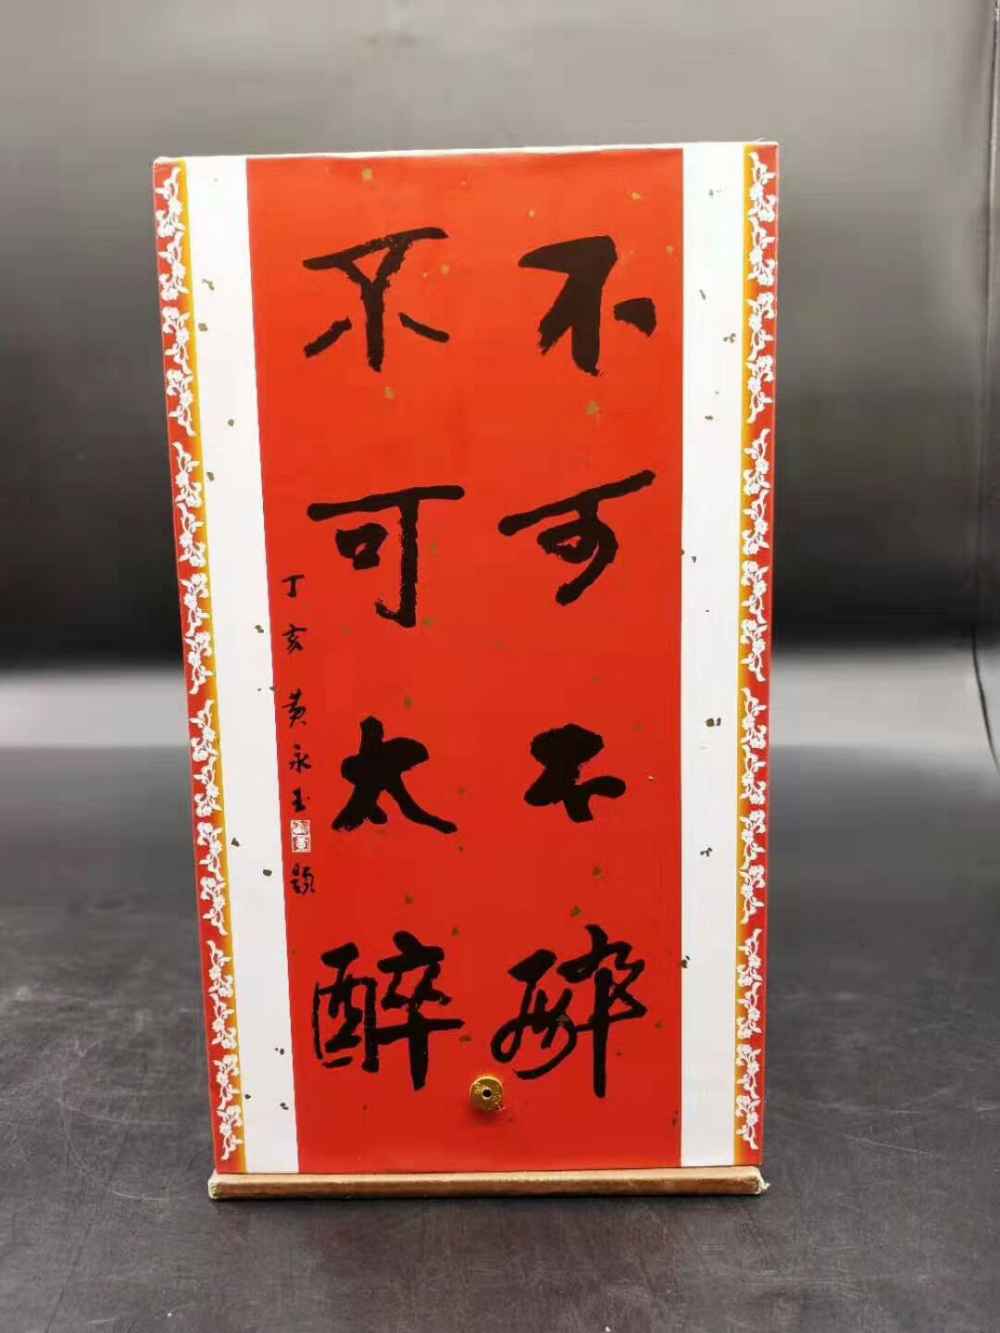 不可不醉
不可太醉
丁亥 黄永玉题